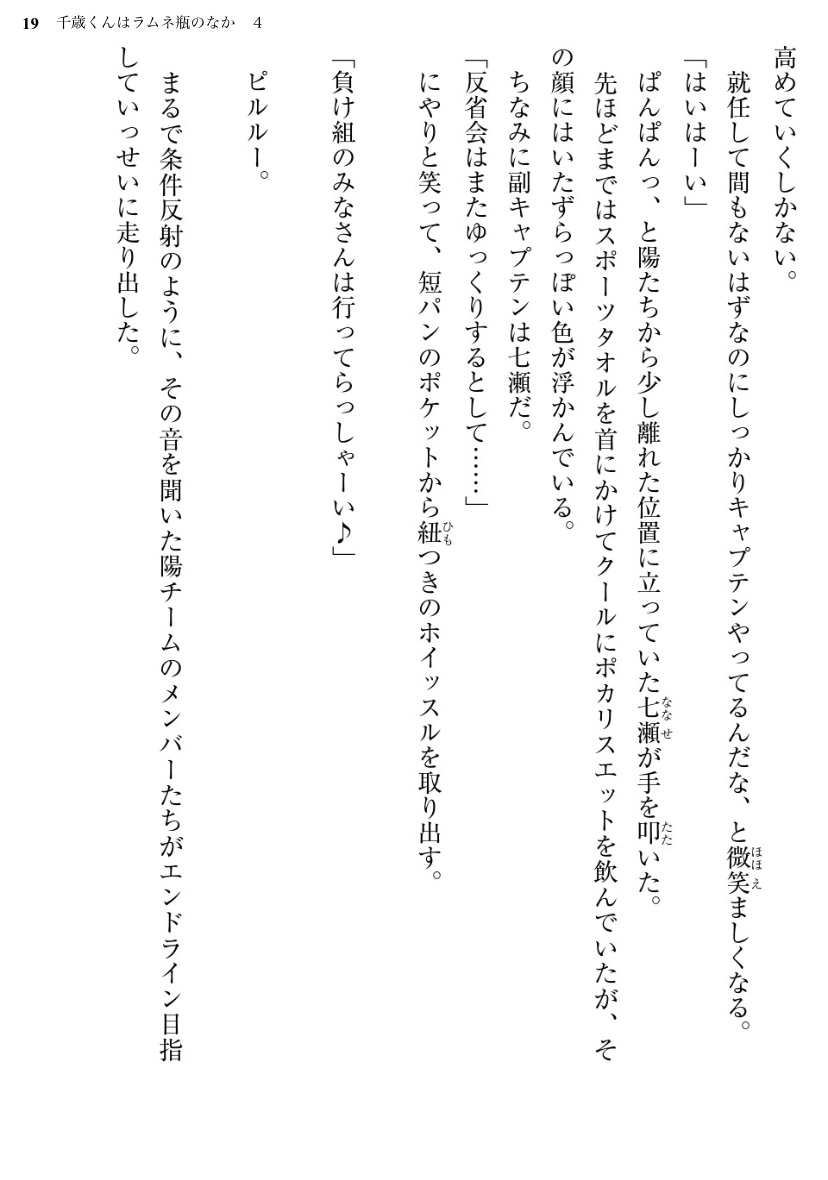 19 千歳くんはラムネ瓶のなか 4
高めていくしかない。
就任して間もないはずなのにしっかりキャプテンやってるんだな、と微笑ましくなる。
「はいはーい」
ぱんぱんっ、と陽たちから少し離れた位置に立っていた七瀬が手を叩いた。
先ほどまではスポーツタオルを首にかけてクールにポカリスエットを飲んでいたが、そ
の顔にはいたずらっぽい色が浮かんでいる。
ちなみに副キャプテンは七瀬だ。
「反省会はまたゆっくりするとして……」
にやりと笑って、短パンのポケットから紐つきのホイッスルを取り出す。
「負け組のみなさんは行ってらっしゃーい♪」
ピルルー。
まるで条件反射のように、その音を聞いた陽チームのメンバーたちがエンドライン目指
していっせいに走り出した。